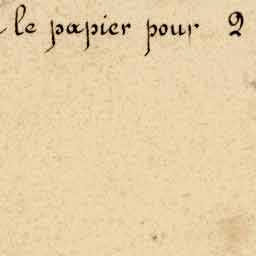 le papier pour 2